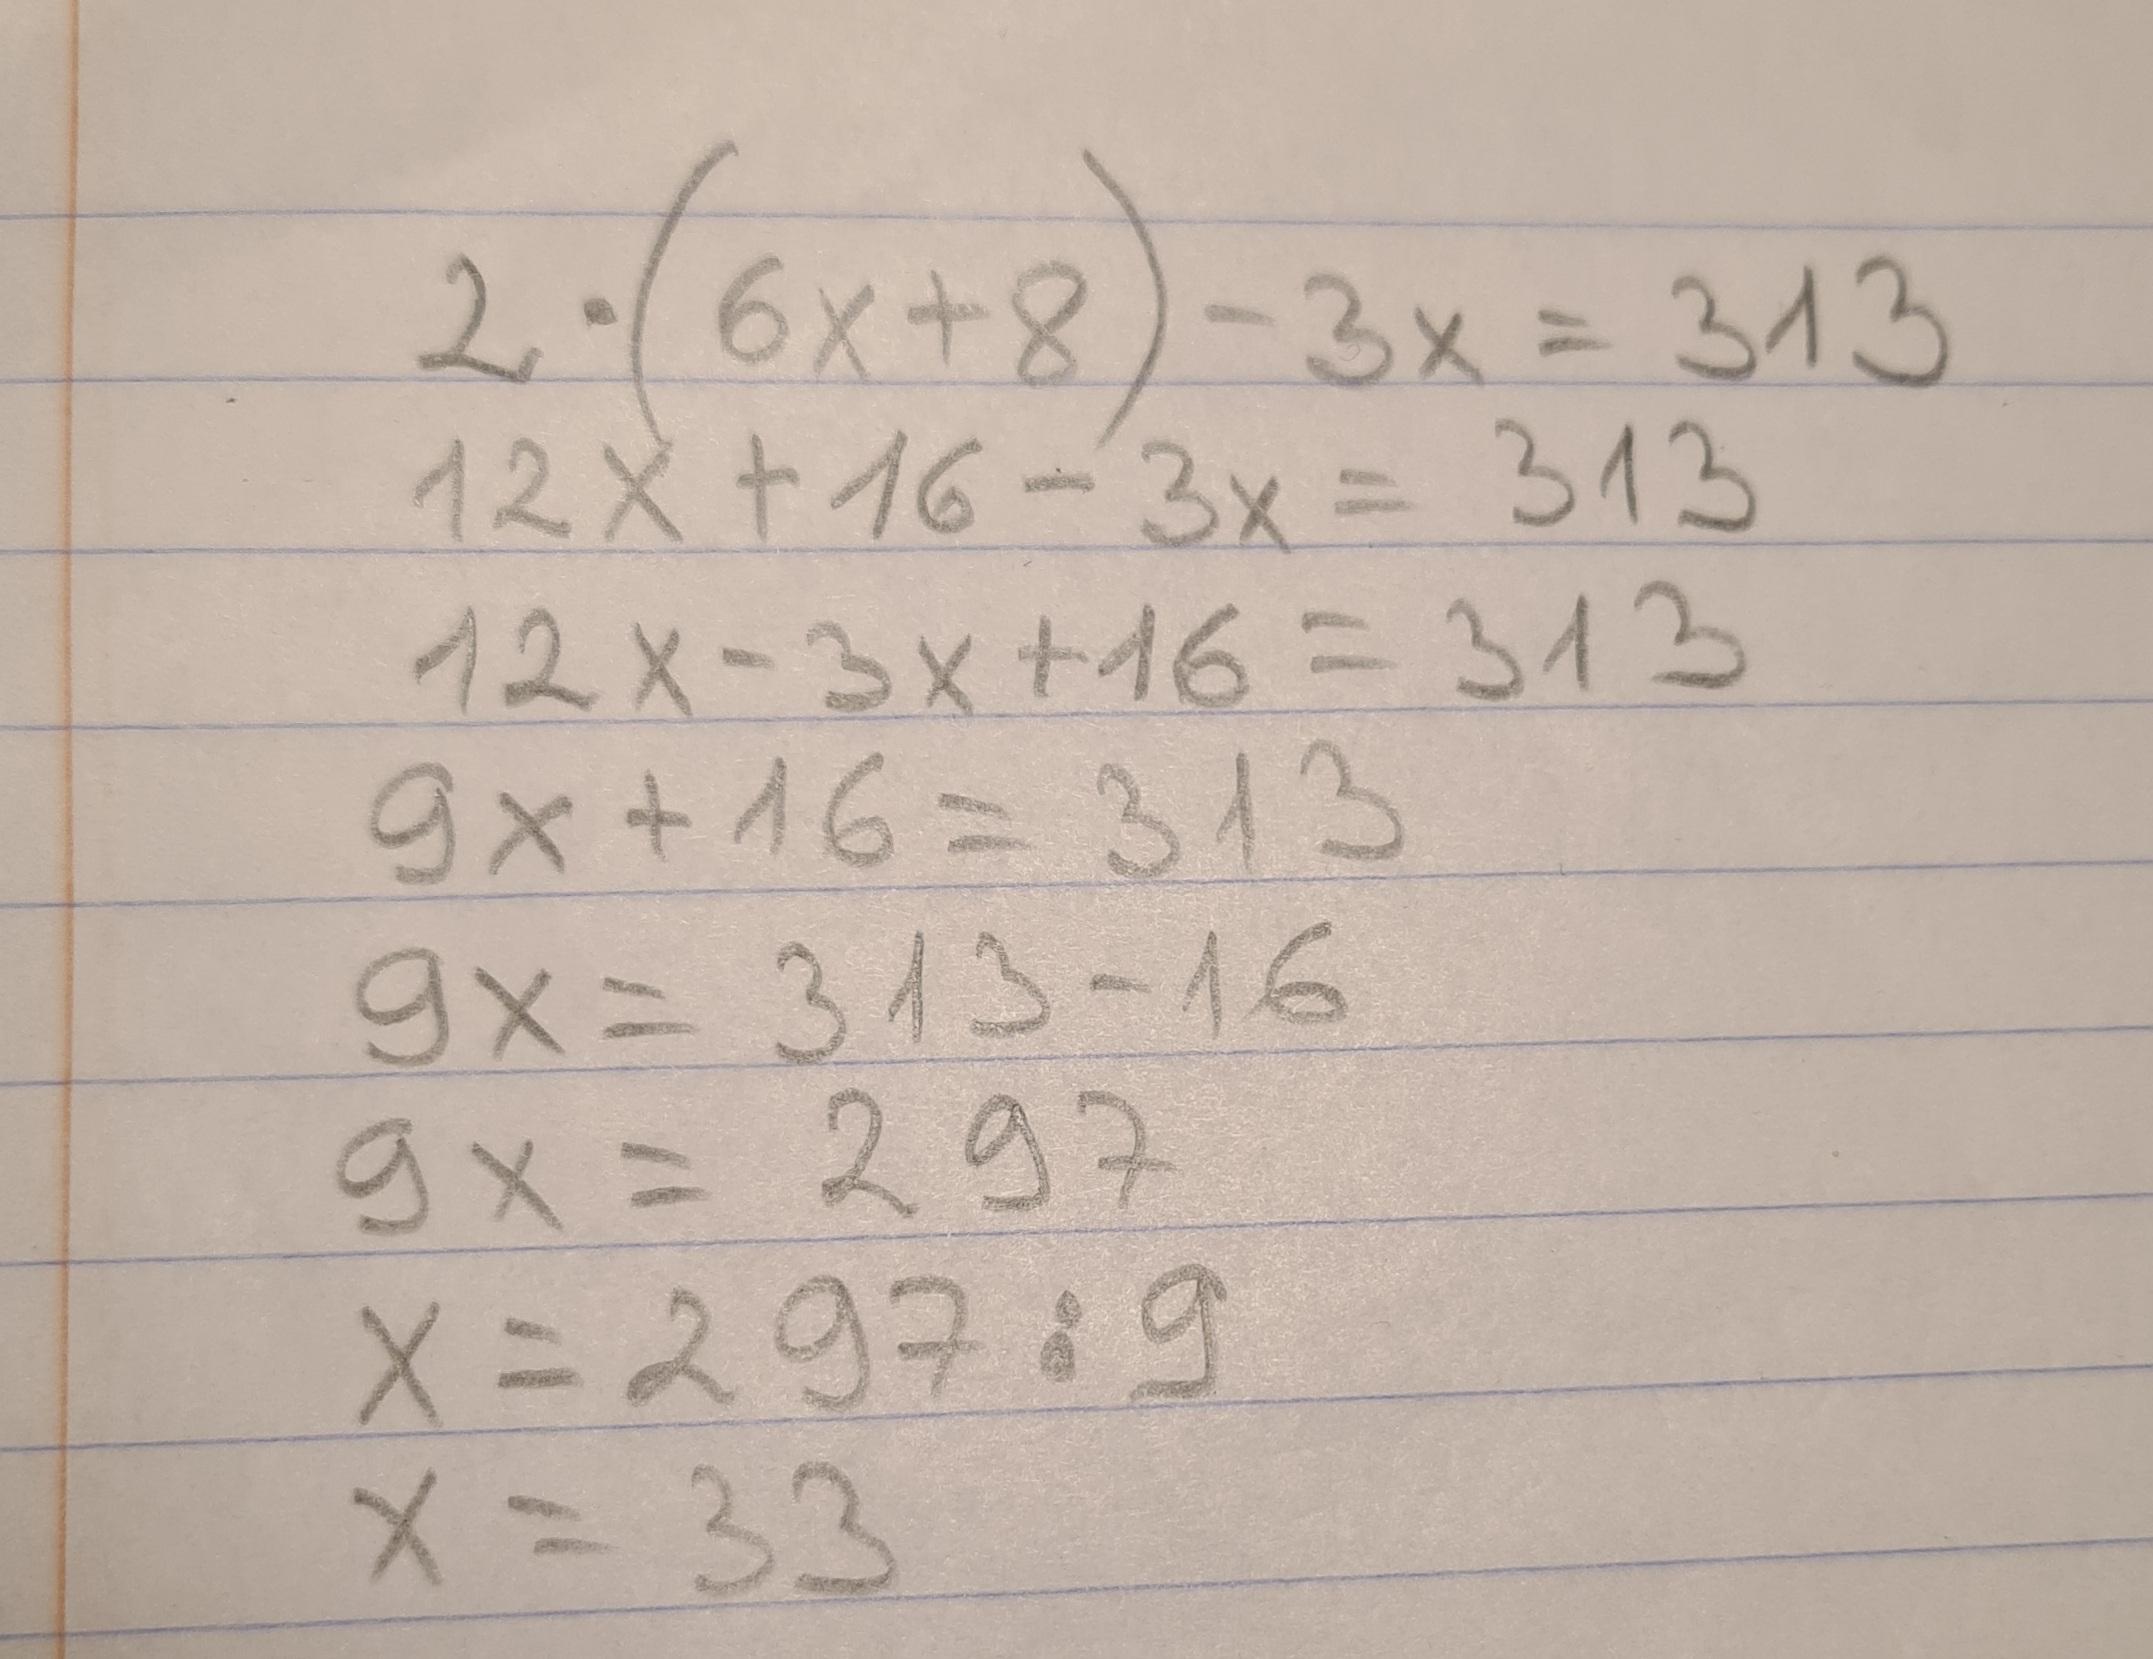 2·(6x+8)-3x=313
12x+16-3x=313
12x-3x+16=313
9x+16=313
9x=313-16
9x=297
x=297:9
x=33